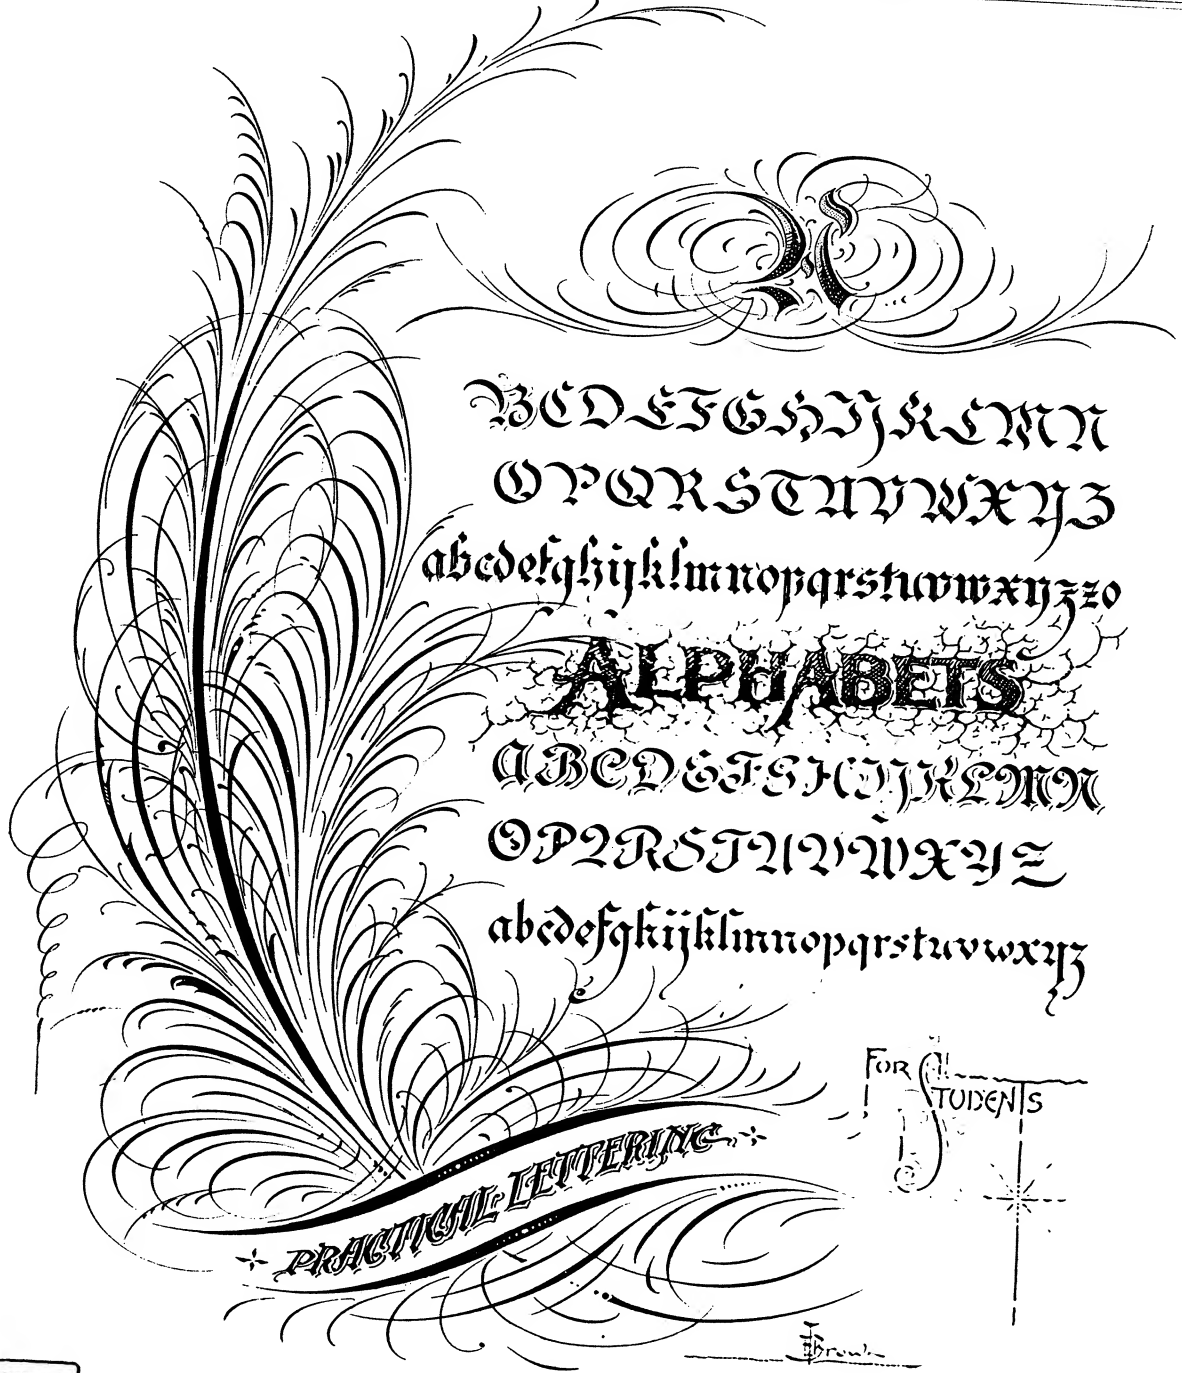 A
BCDEFGHIJKLMN
OPQRSTUVWXYZ
abcdefghijklmnopqrstuvwxyzzo
ALPHABETS
ABCDEFGHIJKLMN
OPQRSTUVWXYZ
abcdefghijklmnopqrstuvwxyz
FOR STUDENTS
PRACTICAL LETTERING
Brown